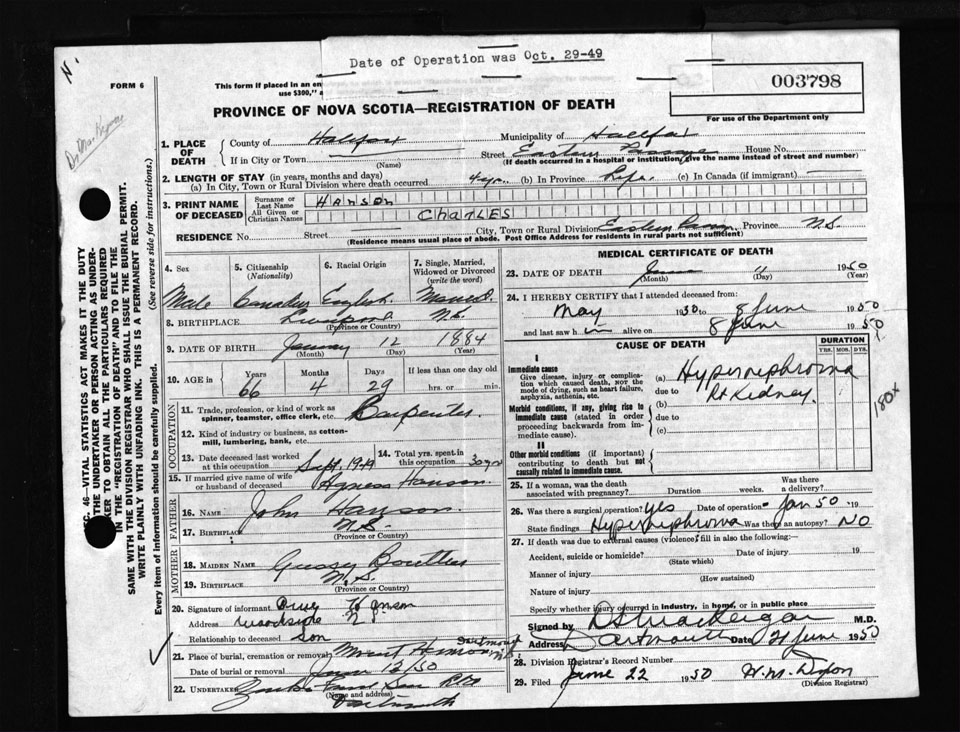 Date of Operation was Oct. 29-49
N.
FORM 6
This form if placed in an en
use $300," a
003798
For use of the Department only
PROVINCE OF NOVA SCOTIA—REGISTRATION OF DEATH
1. PLACE OF DEATH
County of Halifax Municipality of Halifax
If in City or Town (Name) Street Eastern Passage House No.
(If death occurred in a hospital or institution, give the name instead of street and number)
2. LENGTH OF STAY (in years, months and days)
(a) In City, Town or Rural Division where death occurred 4 yrs. (b) In Province Life. (c) In Canada (if immigrant)
3. PRINT NAME OF DECEASED
Surname or Last Name HANSON
All Given or Christian Names CHARLES
RESIDENCE No. Street City, Town or Rural Division Eastern Province N.S.
(Residence means usual place of abode. Post Office Address for residents in rural parts not sufficient)
4. Sex 5. Citizenship (Nationality) 6. Racial Origin 7. Single, Married, Widowed or Divorced (write the word)
Male Canadian English. Married.
8. BIRTHPLACE Liverpool N.S.
(Province or Country)
9. DATE OF BIRTH January 12 1884
(Month) (Day) (Year)
10. AGE in Years Months Days If less than one day old
66 4 29 hrs. or min.
OCCUPATION
11. Trade, profession, or kind of work as spinner, teamster, office clerk, etc. Carpenter.
12. Kind of industry or business, as cotton-mill, lumbering, bank, etc.
13. Date deceased last worked at this occupation Sept. 1949 14. Total yrs. spent in this occupation 30 yrs
15. If married give name of wife or husband of deceased Agness Hanson.
FATHER
16. NAME John Hanson.
17. BIRTHPLACE N.S.
(Province or Country)
MOTHER
18. MAIDEN NAME
19. BIRTHPLACE N.S.
(Province or Country)
20. Signature of informant Hanson
Address Woodside N.S.
Relationship to deceased Son
21. Place of burial, cremation or removal Mount Hermon Dartmouth N.S.
Date of burial or removal June 12/50
22. UNDERTAKER
(Name and address)
Dartmouth
MEDICAL CERTIFICATE OF DEATH
23. DATE OF DEATH June 11 1950
(Month) (Day) (Year)
24. I HEREBY CERTIFY that I attended deceased from:
May 1950 to 8 June 1950
and last saw him alive on 8 June 1950
CAUSE OF DEATH
DURATION
YRS. MOS. DYS.
I
Immediate cause
Give disease, injury or complication which caused death, NOT the mode of dying, such as heart failure, asphyxia, asthenia, etc.
(a) Hypernephroma
due to Rt Kidney.
Morbid conditions, if any, giving rise to immediate cause (stated in order proceeding backwards from immediate cause).
(b)
due to
(c)
II
Other morbid conditions (if important) contributing to death but not causally related to immediate cause.
180x
25. If a woman, was the death associated with pregnancy? Duration weeks. Was there a delivery?
26. Was there a surgical operation? yes Date of operation Jan 50 19
State findings Hypernephroma Was there an autopsy? NO
27. If death was due to external causes (violence) fill in also the following:—
Accident, suicide or homicide? Date of injury 19
(State which)
Manner of injury
(How sustained)
Nature of injury
Specify whether injury occurred in industry, in home, or in public place
Signed by D S MacKeigan M.D.
Address Dartmouth Date 21 June 1950
28. Division Registrar's Record Number
29. Filed June 22 1950 W. M. Dixon
(Division Registrar)
SEC. 46—VITAL STATISTICS ACT MAKES IT THE DUTY
THE UNDERTAKER OR PERSON ACTING AS UNDER-
KER TO OBTAIN ALL THE PARTICULARS REQUIRED
IN THE "REGISTRATION OF DEATH" AND TO FILE THE
SAME WITH THE DIVISION REGISTRAR WHO SHALL ISSUE THE BURIAL PERMIT.
WRITE PLAINLY WITH UNFADING INK. THIS IS A PERMANENT RECORD.
Every item of information should be carefully supplied. (See reverse side for instructions.)